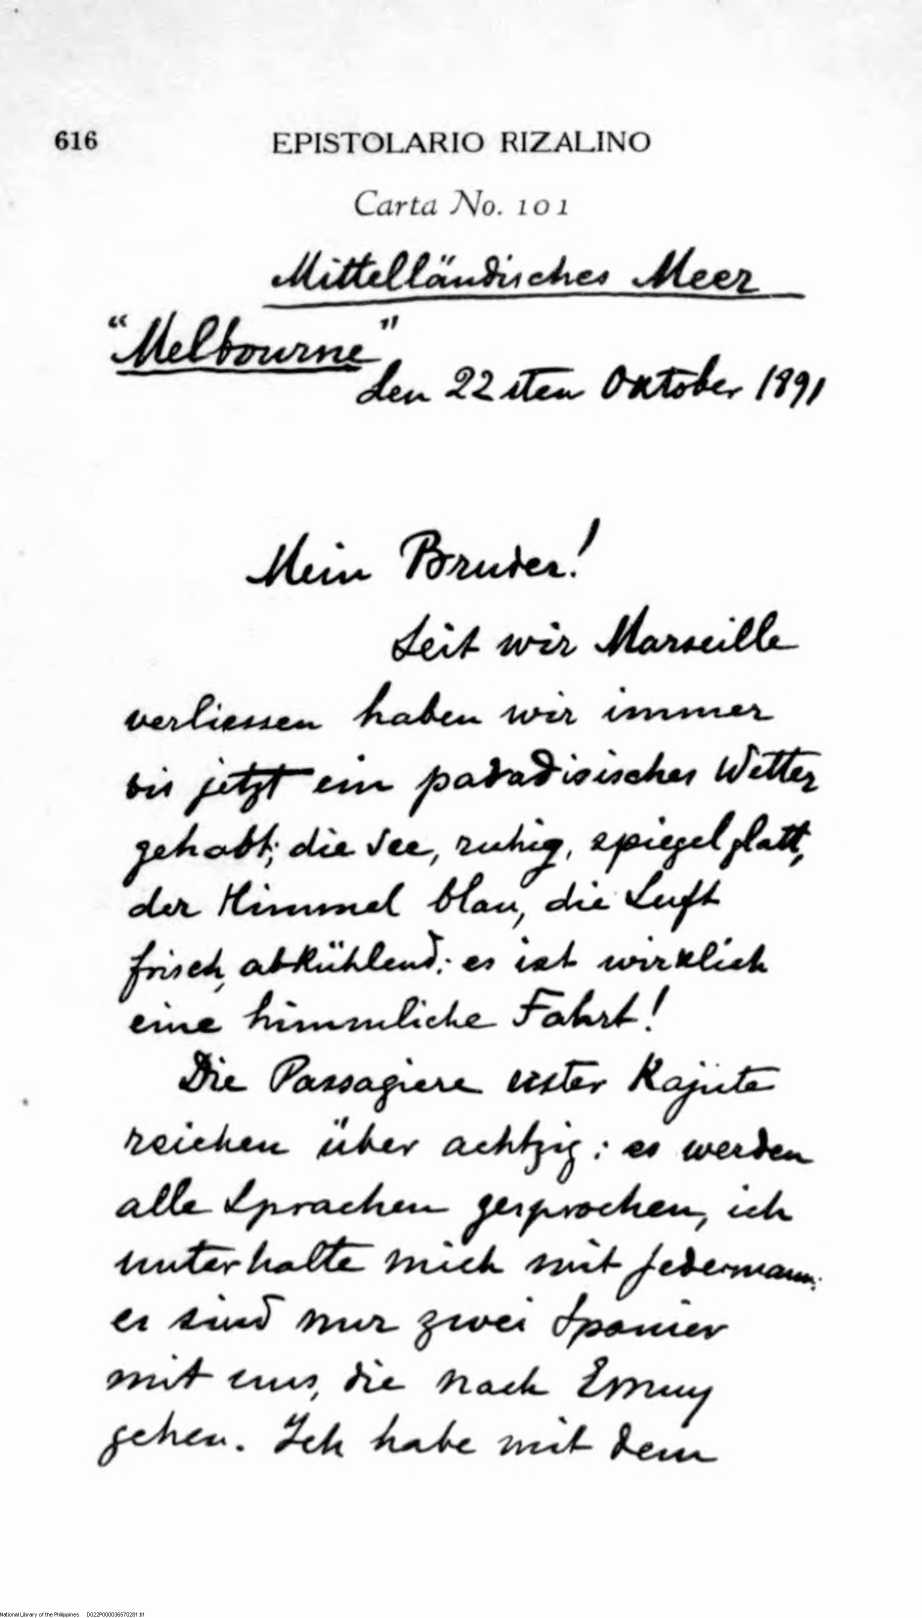 616
EPISTOLARIO RIZALINO
Carta No. 101
Mittelländisches Meer
"Melbourne"
den 22sten Oktober 1891
Mein Bruder!
Seit wir Marseille
verliessen haben wir immer
bis jetzt ein paradisisches Wetter
gehabt; die See, ruhig, spiegelglatt,
der Himmel blau, die Luft
frisch, abkühlend; es ist wirklich
eine himmliche Fahrt!
Die Passagiere erster Kajüte
reichen über achtzig: es werden
alle Sprachen gesprochen, ich
unterhalte mich mit Jedermann:
es sind nur zwei Spanier
mit uns, die nach Emuy
gehen. Ich habe mit dem
National Library of the Philippines D022P000036570281.tif